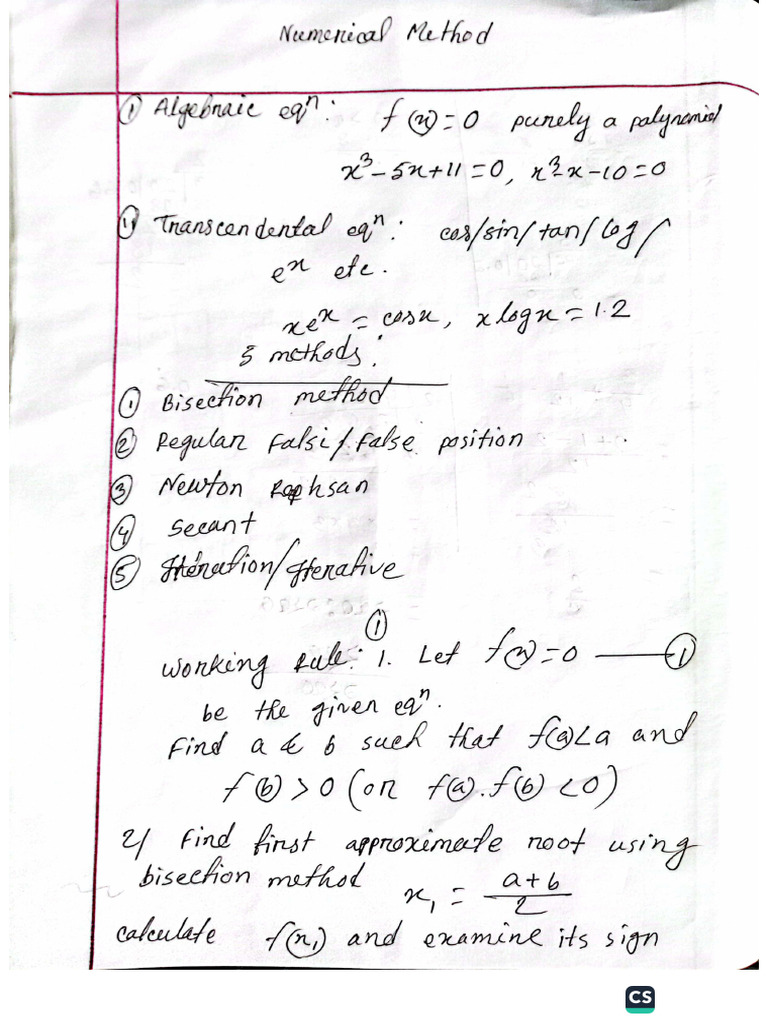 Numerical Method
① Algebraic eqⁿ: f(x) = 0 purely a polynomial
x³ - 5x + 11 = 0, x³ - x - 10 = 0
⑪ Transcendental eqⁿ: cos/sin/tan/log/
eˣ etc.
xeˣ = cosx, xlogx = 1.2
5 methods:
① Bisection method
② Regular Falsi/False position
③ Newton Raphsan
④ Secant
⑤ Iteration/Iterative
①
Working Rule: 1. Let f(x) = 0 —— ①
be the given eqⁿ.
Find a & b such that f(a) < a and
f(b) > 0 (or f(a).f(b) < 0)
2/ Find first approximate root using
bisection method x₁ = (a+b)/2
calculate f(x₁) and examine its sign
CS